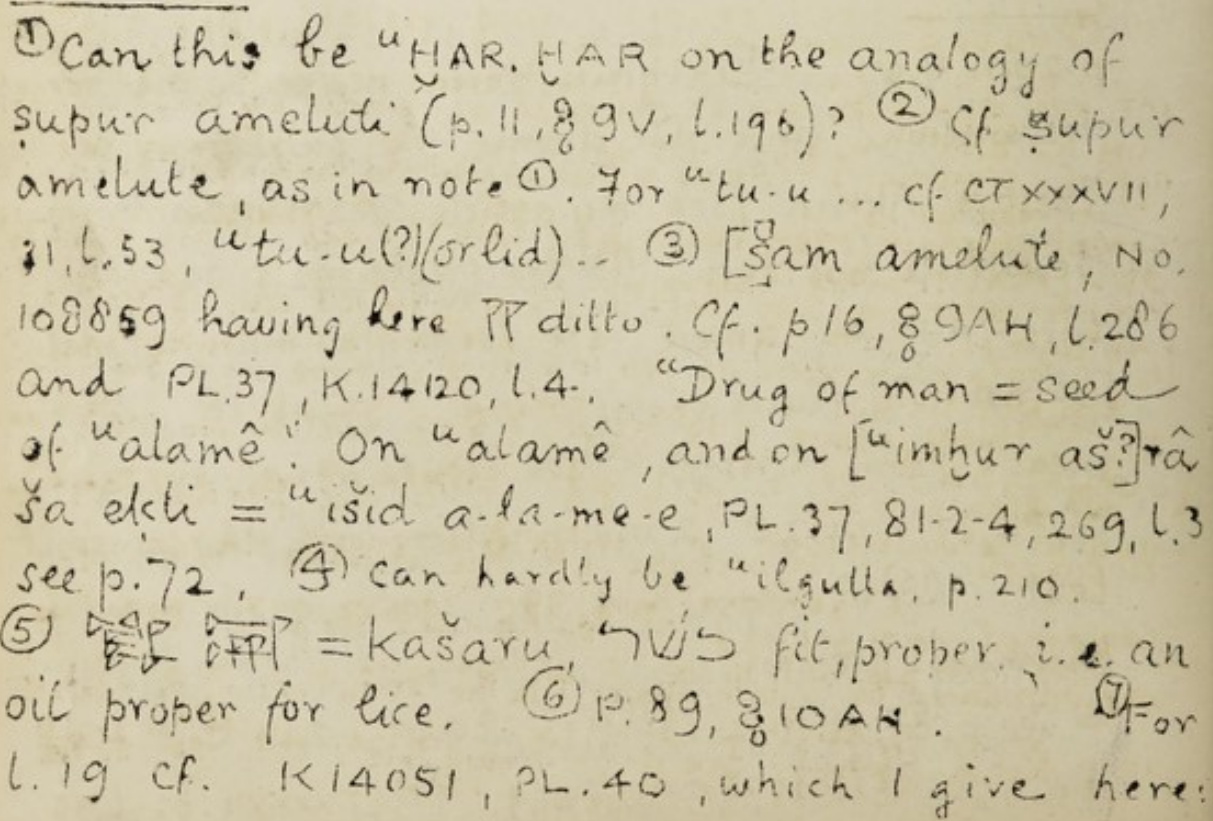 ① Can this be ᵘḪAR.ḪAR on the analogy of
ṣupur ameluti (p.11, § 9V, l.196)? ② Cf ṣupur
amelute, as in note ①. For ᵘtu-u ... cf. CT XXXVII,
31, l.53, ᵘtu-u(?)(or lid).. ③ [Šam amelute, No.
108859 having here 𒐋 ditto. Cf. p16, § 9AH, l.286
and PL.37, K.14120, l.4. "Drug of man = seed
of ᵘalamê". On ᵘalamê, and on [ᵘimḫur aš?]râ
ša ekli = ᵘišid a-la-me-e, PL.37, 81-2-4, 269, l.3
see p.72. ④ Can hardly be ᵘilgulla, p.210.
⑤ = kašaru, כשׁר fit, proper, i.e. an
oil proper for lice. ⑥ P. 89, § 10AH. ⑦ For
l.19 cf. K14051, PL.40, which I give here: